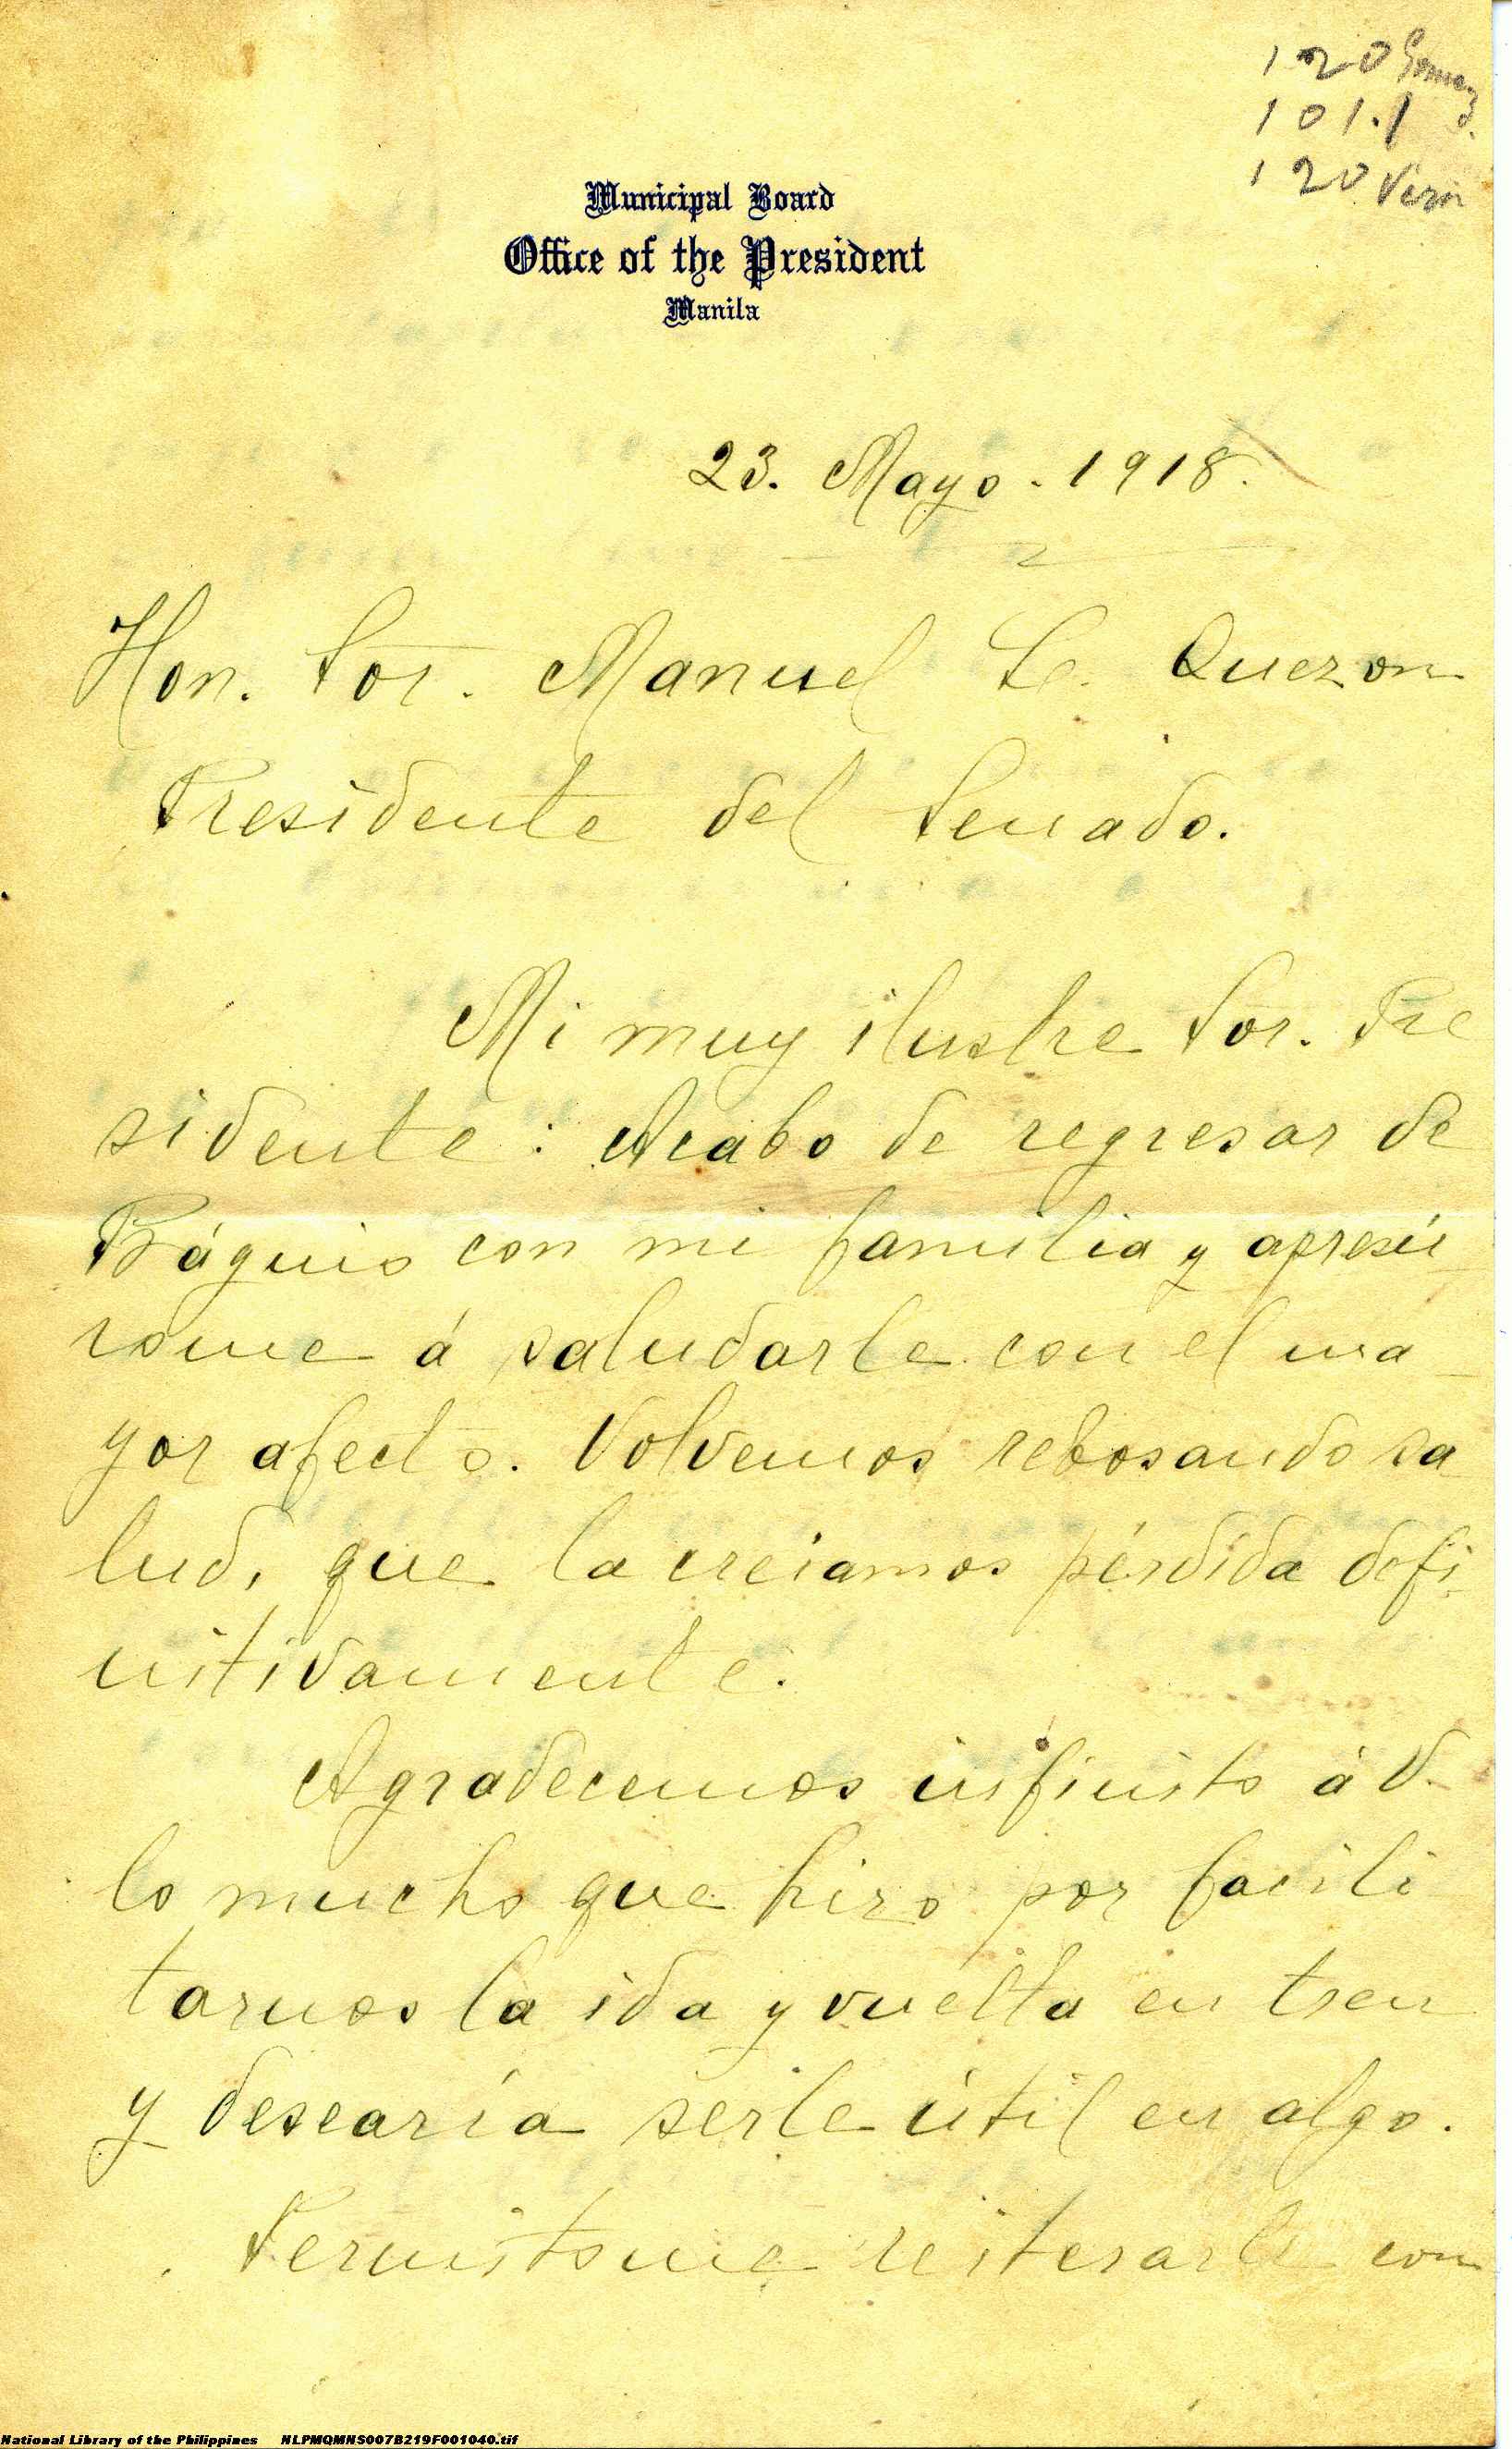 120 Gomez.
101.1
120 Vera
Municipal Board
Office of the President
Manila
23. Mayo. 1918.
Hon. Sor. Manuel L. Quezon
Presidente del Senado.
Mi muy ilustre Sor. Pre
sidente: Acabo de regresar de
Báguio con mi familia y apresú
rome á saludarle con el ma
yor afecto. Volvemos rebosando sa
lud, que la creiamos pérdida defi
nitivamente.
Agradecemos infinito á V.
lo mucho que hizo por facili
tarnos la ida y vuelta en tren
y desearía serle útil en algo.
Permitame reiterarle con
National Library of the Philippines NLPMQMNS007B219F001040.tif